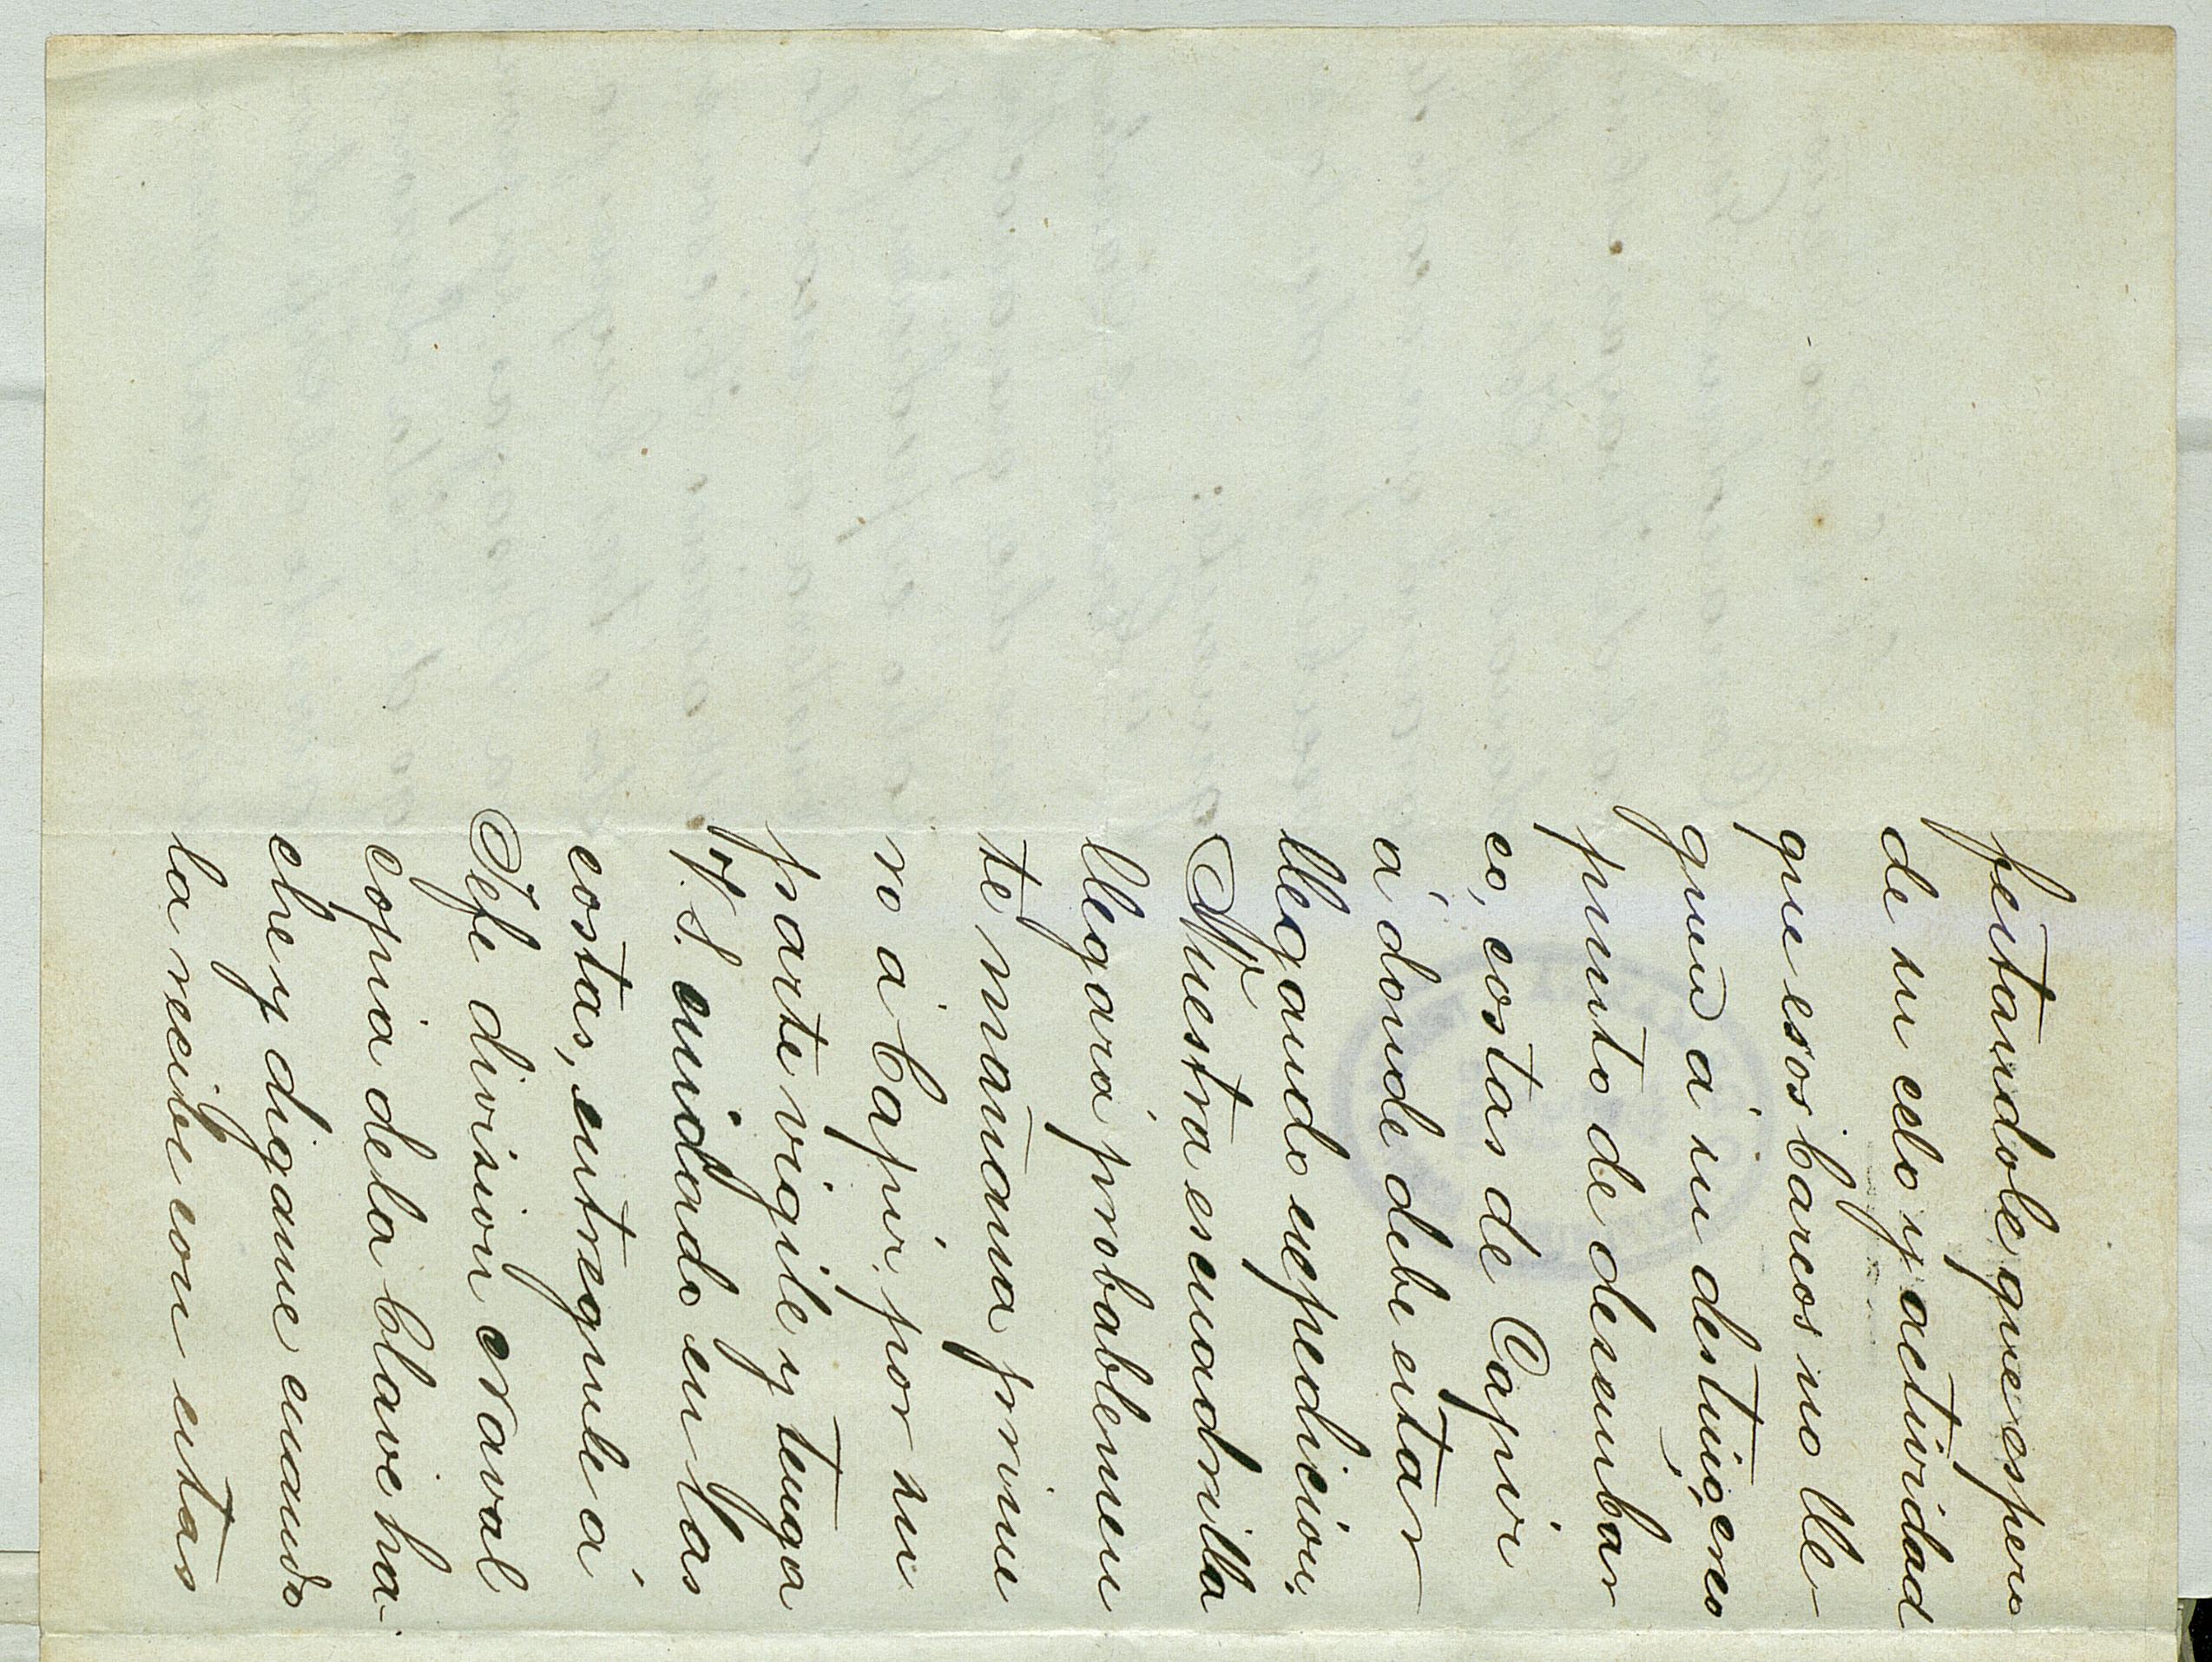 festandole que espero
de su celo y actividad
que esos barcos no lle-
guen á su destino, creo
punto de desembar
co, costas de Capir
á donde debe estar
llegando expedicion.
Nuestra escuadrilla
llegará probablemen
te mañana prime
ro á Capir, por su
parte vigile y tenga
V. S. cuidado en las
costas, entreguele á
Jefe division naval
copia dela Clave ha-
che y digame cuando
la recibe con estas